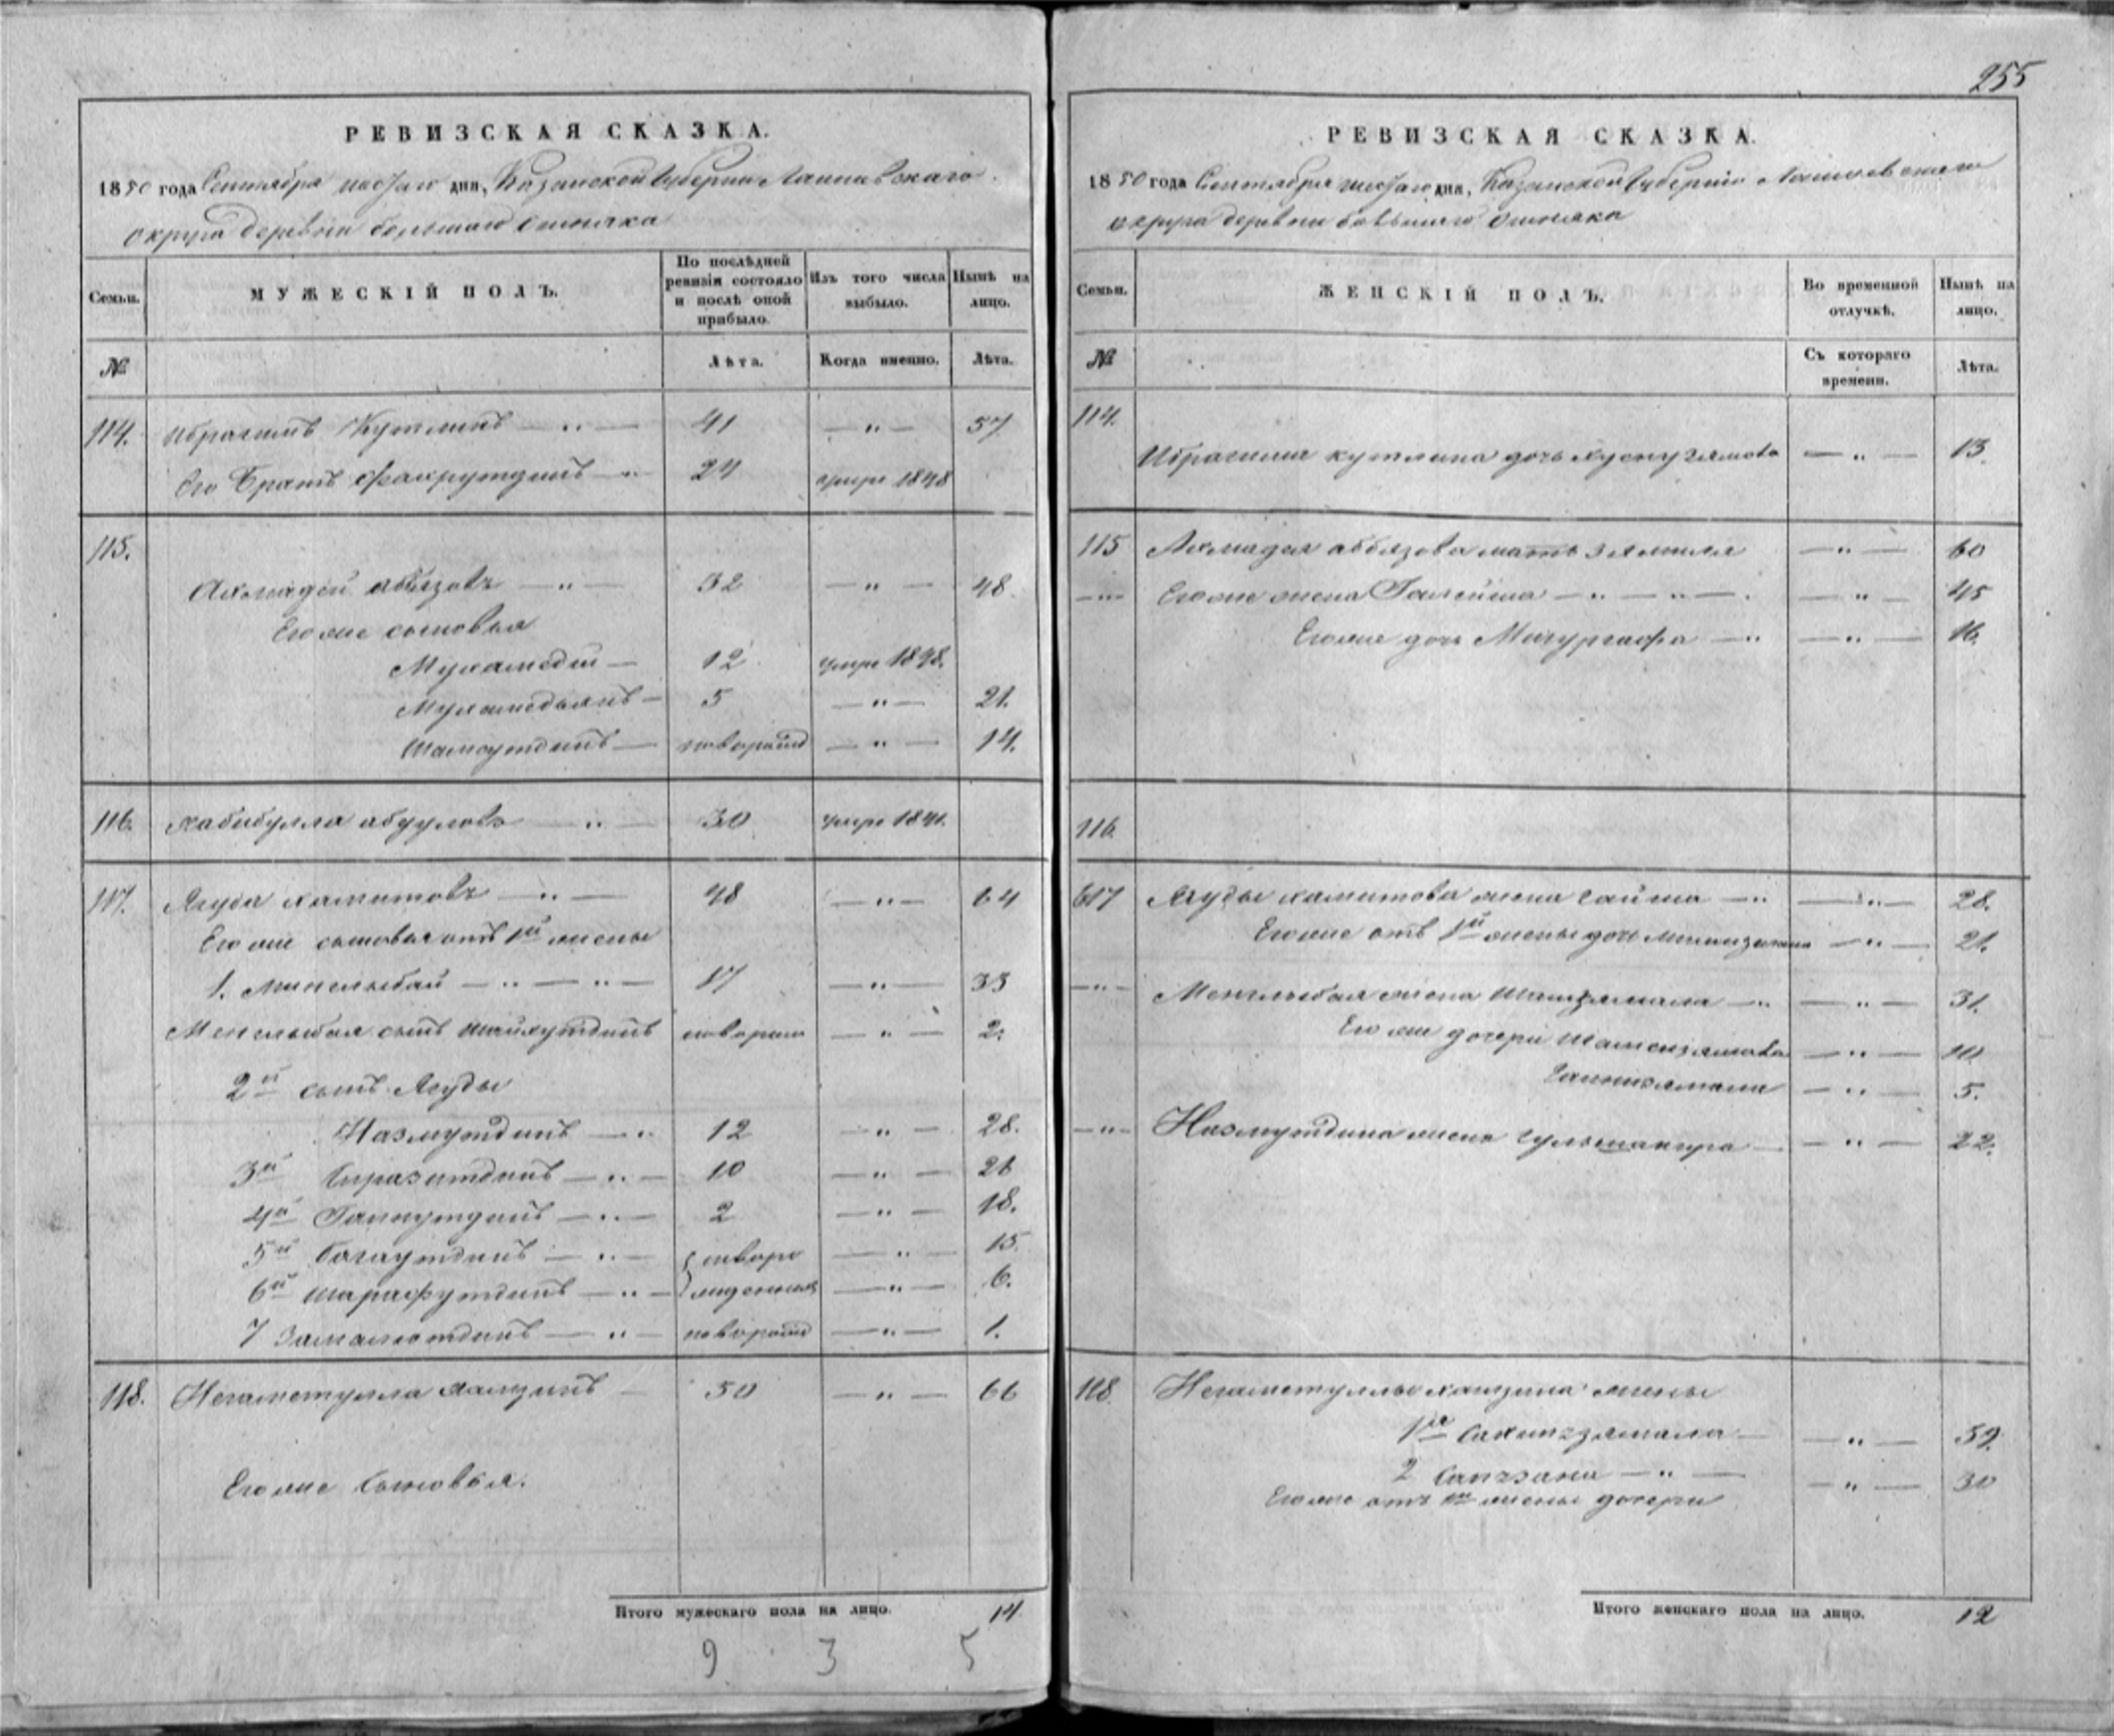 РЕВИЗСКАЯ СКАЗКА.
1850 года Сентября шестаго дня, Казанской Губернии Лаишевскаго
округа деревни большаго Ошняка
Семьи. МУЖЕСКІЙ ПОЛЪ. По послѣдней ревизіи состояло и послѣ оной прибыло. Изъ того числа выбыло. Нынѣ на лицо.
№ Лѣта. Когда именно. Лѣта.
114. Ибрагимъ Кутлинъ — „ — 41 — „ — 57
Его Братъ Фахрутдинъ — „ 24 умре 1848
115.
Ахмадей абязовъ — „ — 32 — „ — 48.
Его же сыновья
Мухамедій — 12 умре 1848.
Мухамедьянъ — 5 — „ — 21.
Шамсутдинъ — новорожд — „ — 14.
116. Хабибулла абдуловъ — „ — 30 умре 1841.
117. Ягуда хамитовъ — „ — 48 — „ — 64
Его же сыновья отъ 1й жены
1. Минлыбай — „ — „ — 17 — „ — 33
Менлыбая сынъ Шайхутдинъ новорож — „ — 2.
2й сынъ Ягуды
Назмутдинъ — „ 12 — „ — 28.
3й Сиразитдинъ — „ — 10 — „ — 26
4й Гайнутдинъ — „ — 2 — „ — 18.
5й Багаутдинъ — „ — новоро — „ — 15.
6й Шарафутдинъ — „ — жденныя — „ — 6.
7 Замалютдинъ — „ — новорожд — „ — 1.
118. Негаметулла хамзинъ — 50 — „ — 66
Его же Сыновья.
Итого мужескаго пола на лицо. 14
9 3 5
255
РЕВИЗСКАЯ СКАЗКА.
1850 года Сентября шестаго дня, Казанской Губернии Лаишевскаго
округа деревни большаго Ошняка
Семьи. ЖЕНСКІЙ ПОЛЪ. Во временной отлучкѣ. Нынѣ на лицо.
№ Съ котораго времени. Лѣта.
114.
Ибрагима кутлина дочь — „ — 13.
115 Ахмадея абязова мать Зямиля — „ — 60
— „ — Его же жена Галейша — „ — „ — . — „ — 45
Его же дочь — „ — „ — 16.
116.
617 Ягуды хамитова жена Гайша — „ — „ — 28.
Его же отъ 1й жены дочь — „ — 21.
— „ — Менглыбая жена — „ — „ — 31.
Его же дочери — „ — 10.
— „ — 5.
— „ — Назмутдина жена — — „ — 22.
118 Негаметуллы хамзина жены
1я — — „ — 59.
2 — „ — — „ — 30
Его же отъ 1й жены дочери
Итого женскаго пола на лицо. 12